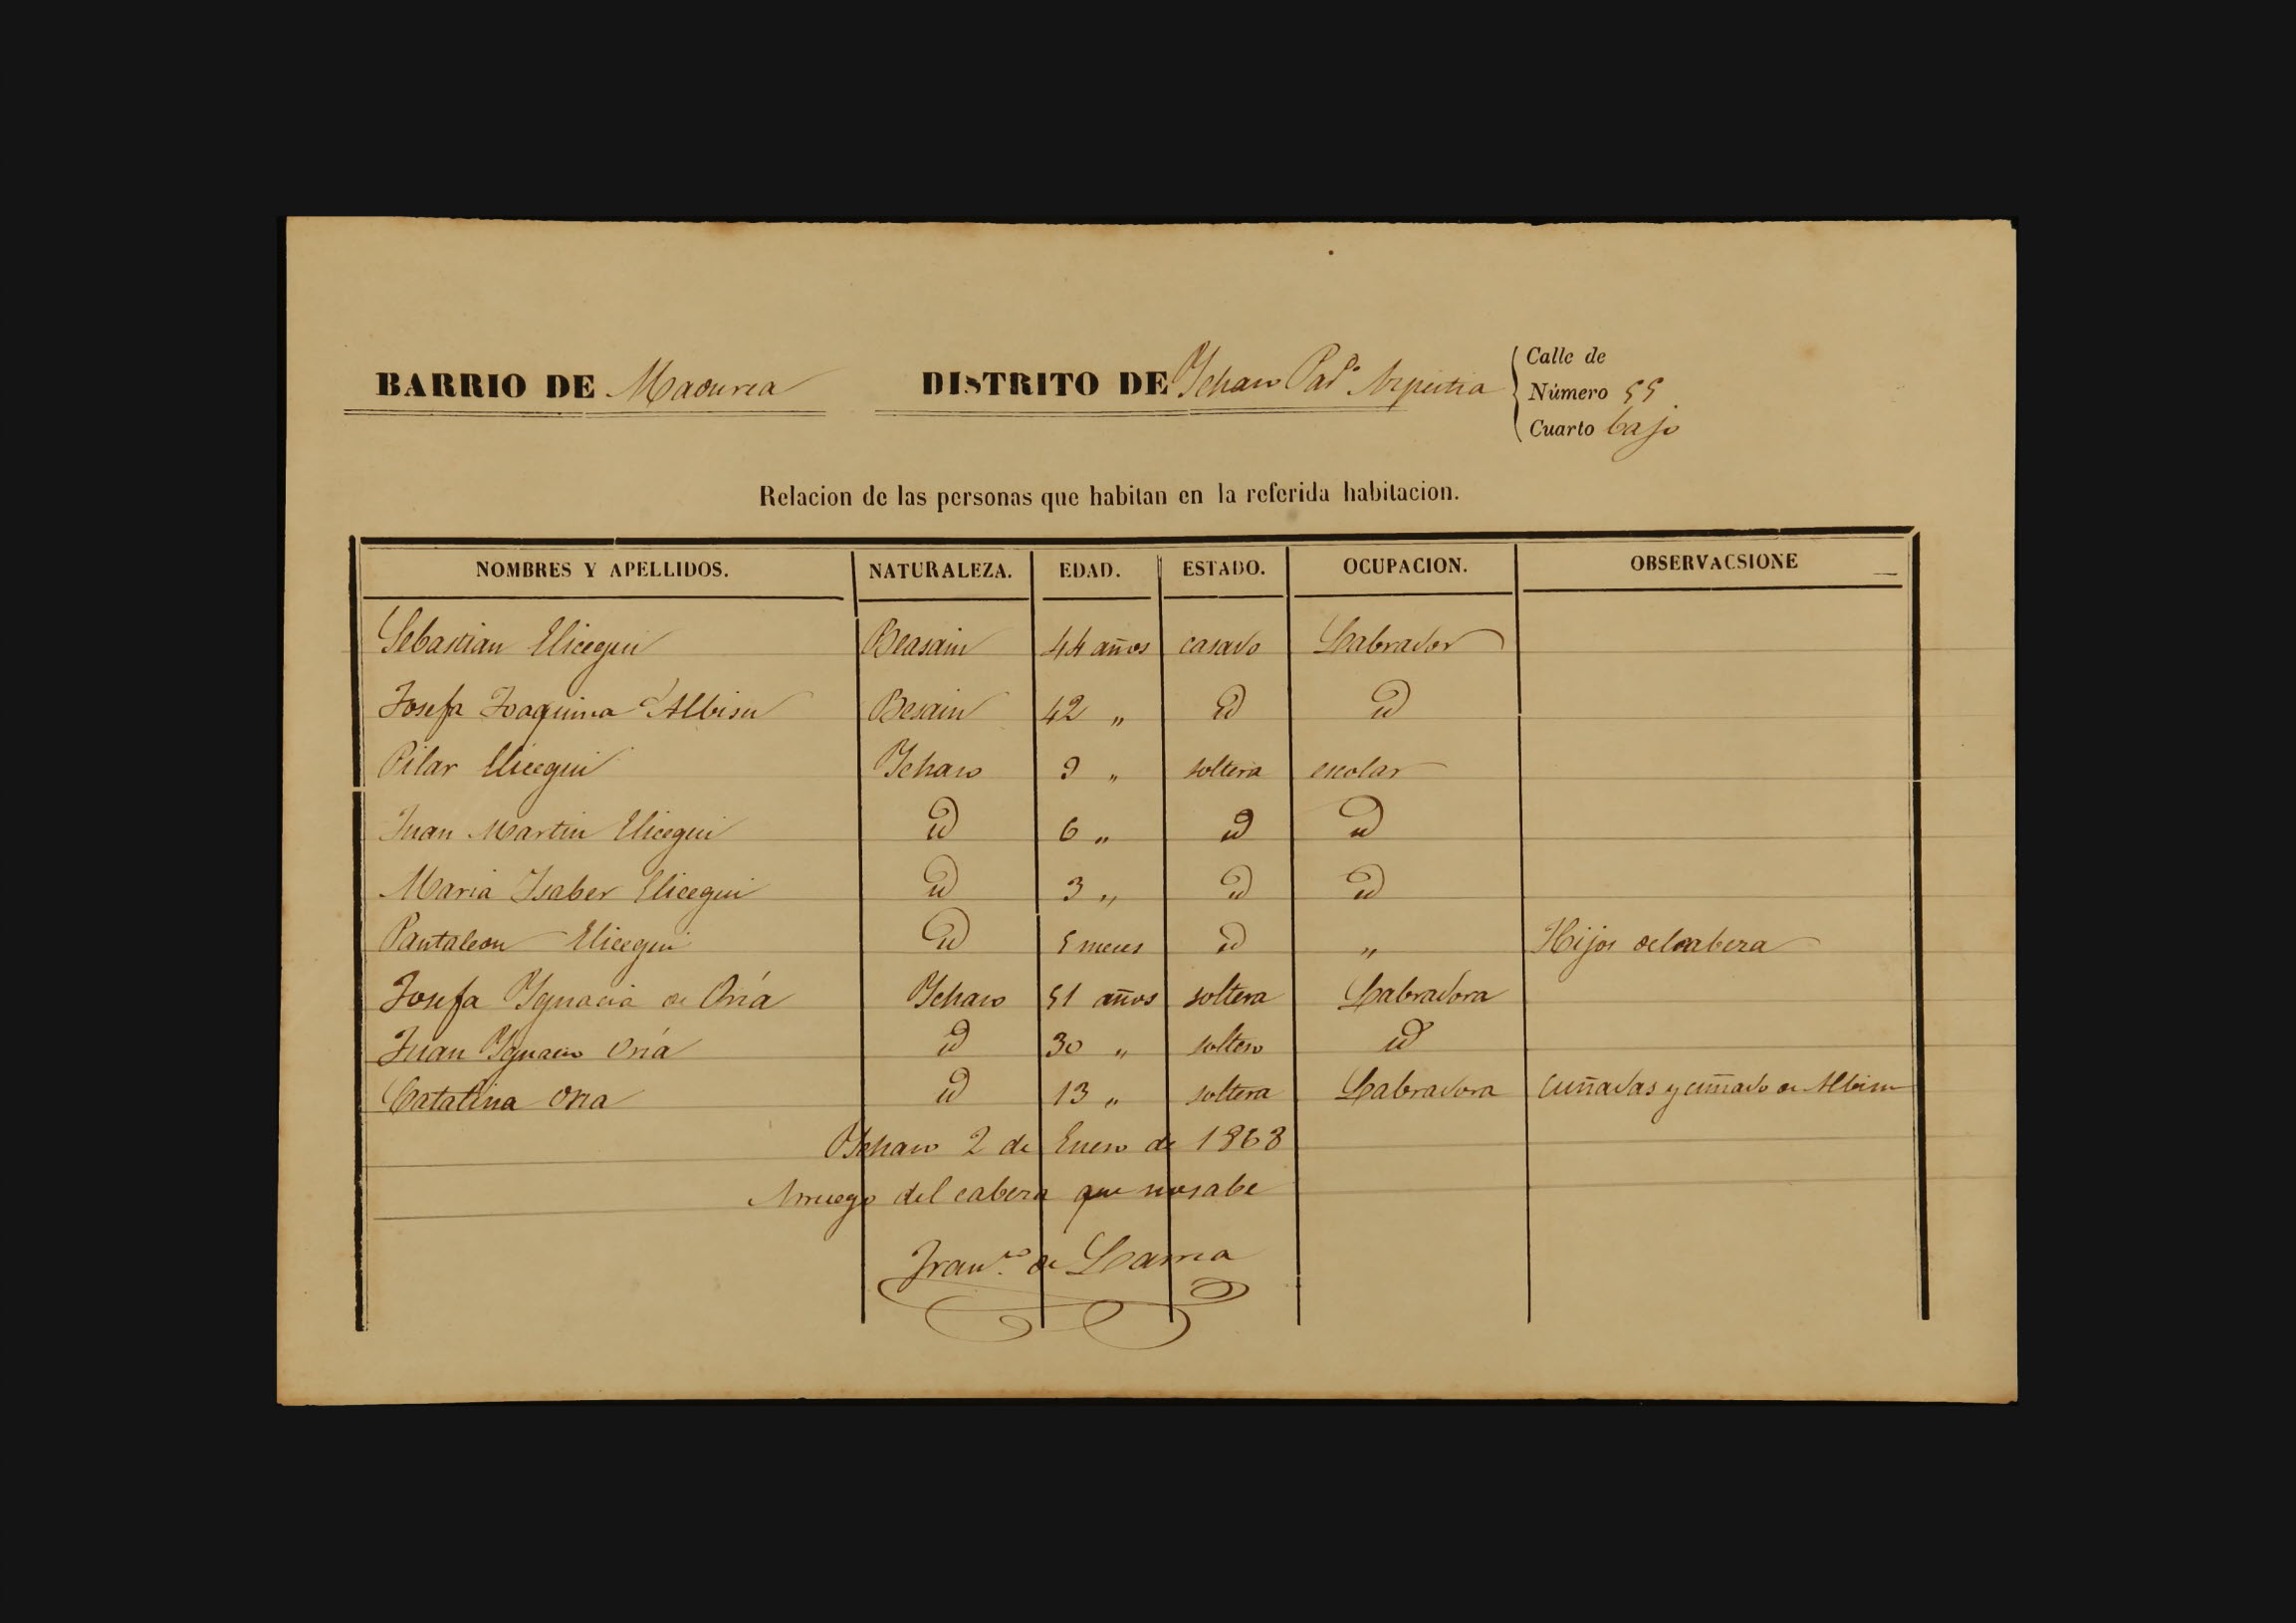 BARRIO DE Maourea DISTRITO DE Ychaso Pard.º Azpeitia
Calle de
Número 55
Cuarto bajo
Relacion de las personas que habitan en la referida habitacion.
NOMBRES Y APELLIDOS. NATURALEZA. EDAD. ESTADO. OCUPACION. OBSERVACSIONE
Sebastian Elicegui Beasain 44 años casado Labrador
Josefa Joaquina Albisu Besain 42 „ id id
Pilar Elicegui Ychaso 9 „ soltera escolar
Juan Martin Elicegui id 6 „ id id
Maria Ysaber Elicegui id 3 „ id id
Pantaleon Elicegui id 5 meses id „ Hijos del cabeza
Josefa Ygnacia de Oria Ychaso 51 años soltera Labradora
Juan Ygnacio Oria id 30 „ soltero id
Catalina Oria id 13 „ soltera Labradora cuñadas y cuñado de Albisu
Ychaso 2 de Enero de 1868
Arruego del cabeza que no sabe
Fran.co de Larrea